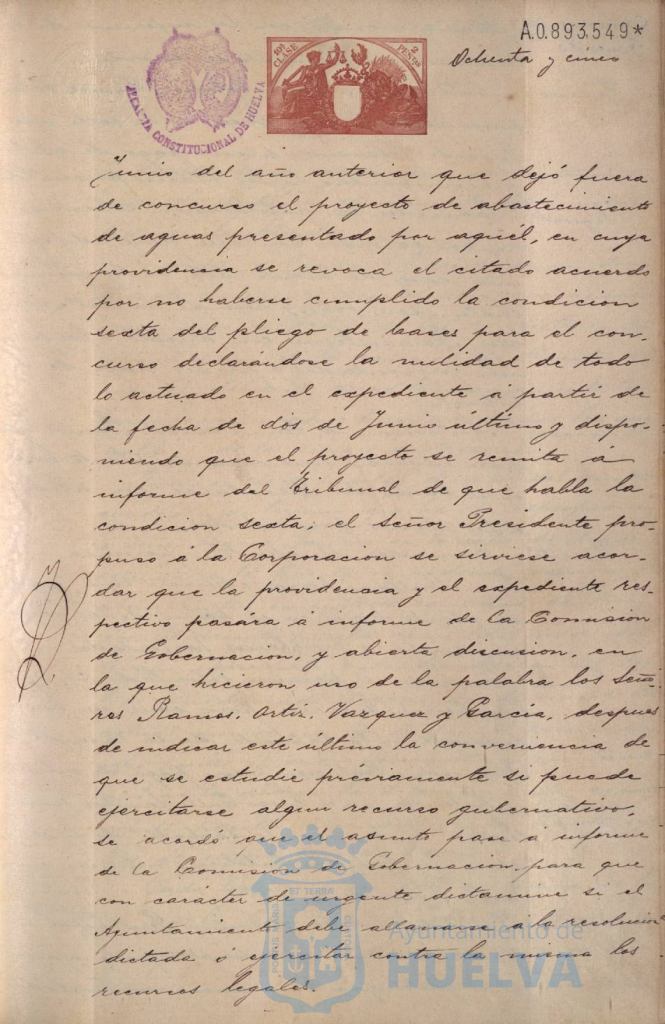 A.0.893.549*
Ochenta y cinco
ALCALDIA CONSTITUCIONAL DE HUELVA
10ª CLASE
2 PESETAS
Junio del año anterior que dejó fuera
de concurso el proyecto de abastecimiento
de aguas presentado por aquél, en cuya
providencia se revoca el citado acuerdo
por no haberse cumplido la condicion
sexta del pliego de bases para el con-
curso declarándose la nulidad de todo
lo actuado en el expediente á partir de
la fecha de dos de Junio último y dispo-
niendo que el proyecto se remita á
informe del Tribunal de que habla la
condicion sexta; el Señor Presidente pro-
puso á la Corporacion se sirviese acor-
dar que la providencia y el expediente res-
pectivo pasára á informe de la Comision
de Gobernacion, y abierta discusion, en
la que hicieron uso de la palabra los Seño-
res Ramos, Ortiz, Vazquez y García, despues
de indicar este último la conveniencia de
que se estudie préviamente si puede
ejercitarse algun recurso gubernativo,
se acordó que el asunto pase á informe
de la Comision de Gobernacion para que
con carácter de urgente dictamine si el
Ayuntamiento debe allanarse á la resolucion
dictada ó ejercitar contra la misma los
recursos legales.
Ayuntamiento de
HUELVA